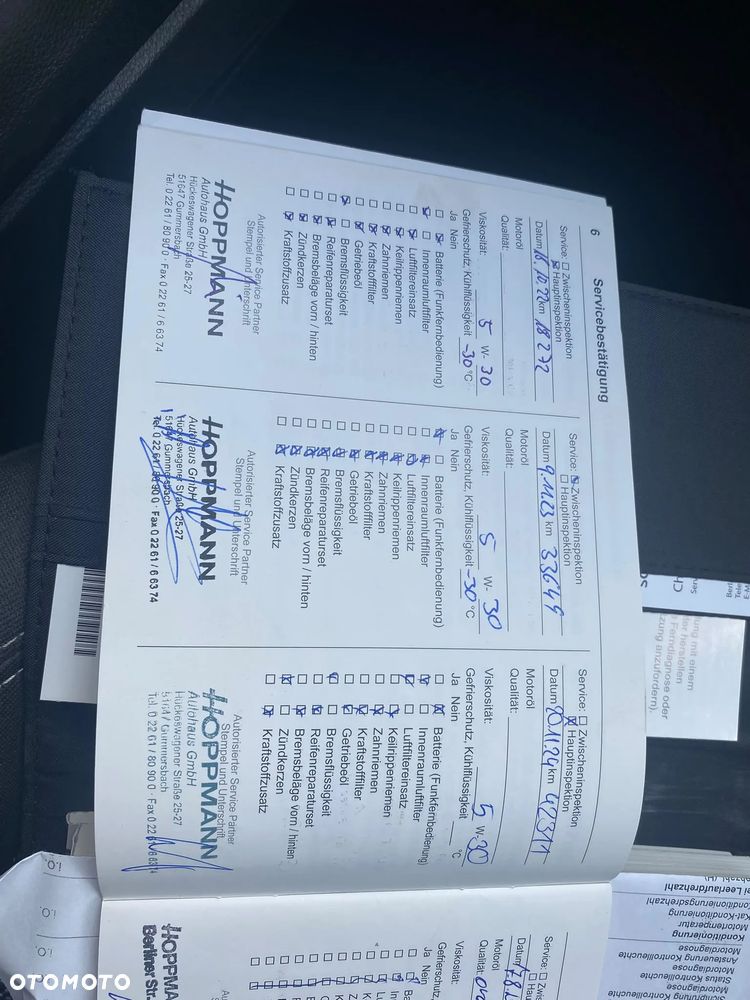 6
Servicebestätigung
Service: Zwischeninspektion
Hauptinspektion
Datum 18.10.22 km 18 272
Motoröl
Qualität:
Viskosität: 5 W- 30
Gefrierschutz, Kühlflüssigkeit -30 °C
Ja Nein
Batterie (Funkfernbedienung)
Innenraumluftfilter
Luftfiltereinsatz
Keilrippenriemen
Zahnriemen
Kraftstofffilter
Getriebeöl
Bremsflüssigkeit
Reifenreparaturset
Bremsbeläge vorn / hinten
Zündkerzen
Kraftstoffzusatz
Autorisierter Service Partner
Stempel und Unterschrift
HOPPMANN
Autohaus GmbH
Hückeswagener Straße 25-27
51647 Gummersbach
Tel. 0 22 61 / 80 90 0 · Fax 0 22 61 / 6 63 74
Service: Zwischeninspektion
Hauptinspektion
Datum 9.11.23 km 33649
Motoröl
Qualität:
Viskosität: 5 W- 30
Gefrierschutz, Kühlflüssigkeit -30 °C
Ja Nein
Batterie (Funkfernbedienung)
Innenraumluftfilter
Luftfiltereinsatz
Keilrippenriemen
Zahnriemen
Kraftstofffilter
Getriebeöl
Bremsflüssigkeit
Reifenreparaturset
Bremsbeläge vorn / hinten
Zündkerzen
Kraftstoffzusatz
Autorisierter Service Partner
Stempel und Unterschrift
HOPPMANN
Autohaus GmbH
Hückeswagener Straße 25-27
51647 Gummersbach
Tel. 0 22 61 / 80 90 0 · Fax 0 22 61 / 6 63 74
Service: Zwischeninspektion
Hauptinspektion
Datum 20.11.24 km 42311
Motoröl
Qualität:
Viskosität: 5 W- 30
Gefrierschutz, Kühlflüssigkeit °C
Ja Nein
Batterie (Funkfernbedienung)
Innenraumluftfilter
Luftfiltereinsatz
Keilrippenriemen
Zahnriemen
Kraftstofffilter
Getriebeöl
Bremsflüssigkeit
Reifenreparaturset
Bremsbeläge vorn / hinten
Zündkerzen
Kraftstoffzusatz
Autorisierter Service Partner
Stempel und Unterschrift
HOPPMANN
Autohaus GmbH
Hückeswagener Straße 25-27
51647 Gummersbach
Tel. 0 22 61 / 80 90 0 · Fax 0 22 61 / 6 63 74
Service:
Datum
Motoröl
Qualität:
Viskosität:
Gefrierschutz,
Ja Nein
HOPPMA
Berliner Str.
mit einem
der herstellen
Ferndiagnose oder
anzufordern).
bei Leerlaufdrehzahl
Kat-Konditionierung
Motortemperatur
Konditionierung
Motordiagnose
Ansteuerung Kontrolleuchte
Motordiagnose
Status Kontrolleuchte
Motordiagnose
i.O.
i.O.
i.O.
OTOMOTO